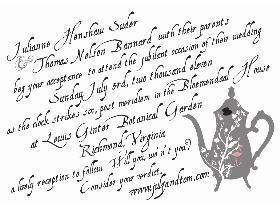 Julianne Henshaw Suder
& Thomas Nelson Bannard with their parents
beg your acceptance to attend the jubilent occasion of their wedding
Sunday July 3rd, two thousand eleven
as the clock strikes six, post meridiem in the Bloemendaal House
at Lewis Ginter Botanical Garden
Richmond, Virginia
a lively reception to follow Will you, wo'n't you?
Consider your verdict
www.julzandtom.com